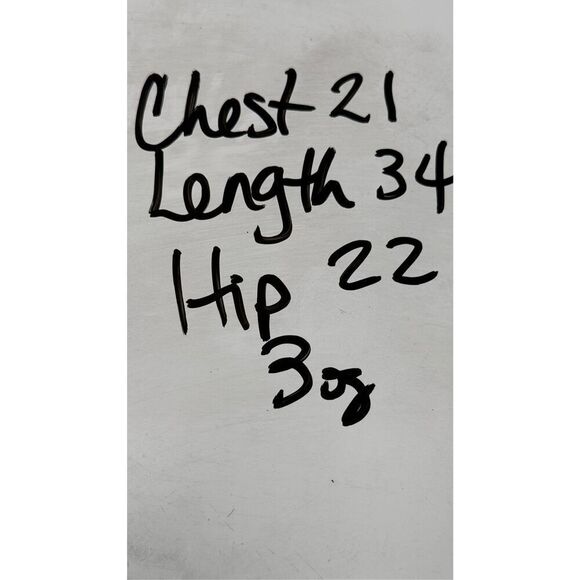 Chest 21
Length 34
Hip 22
3oz